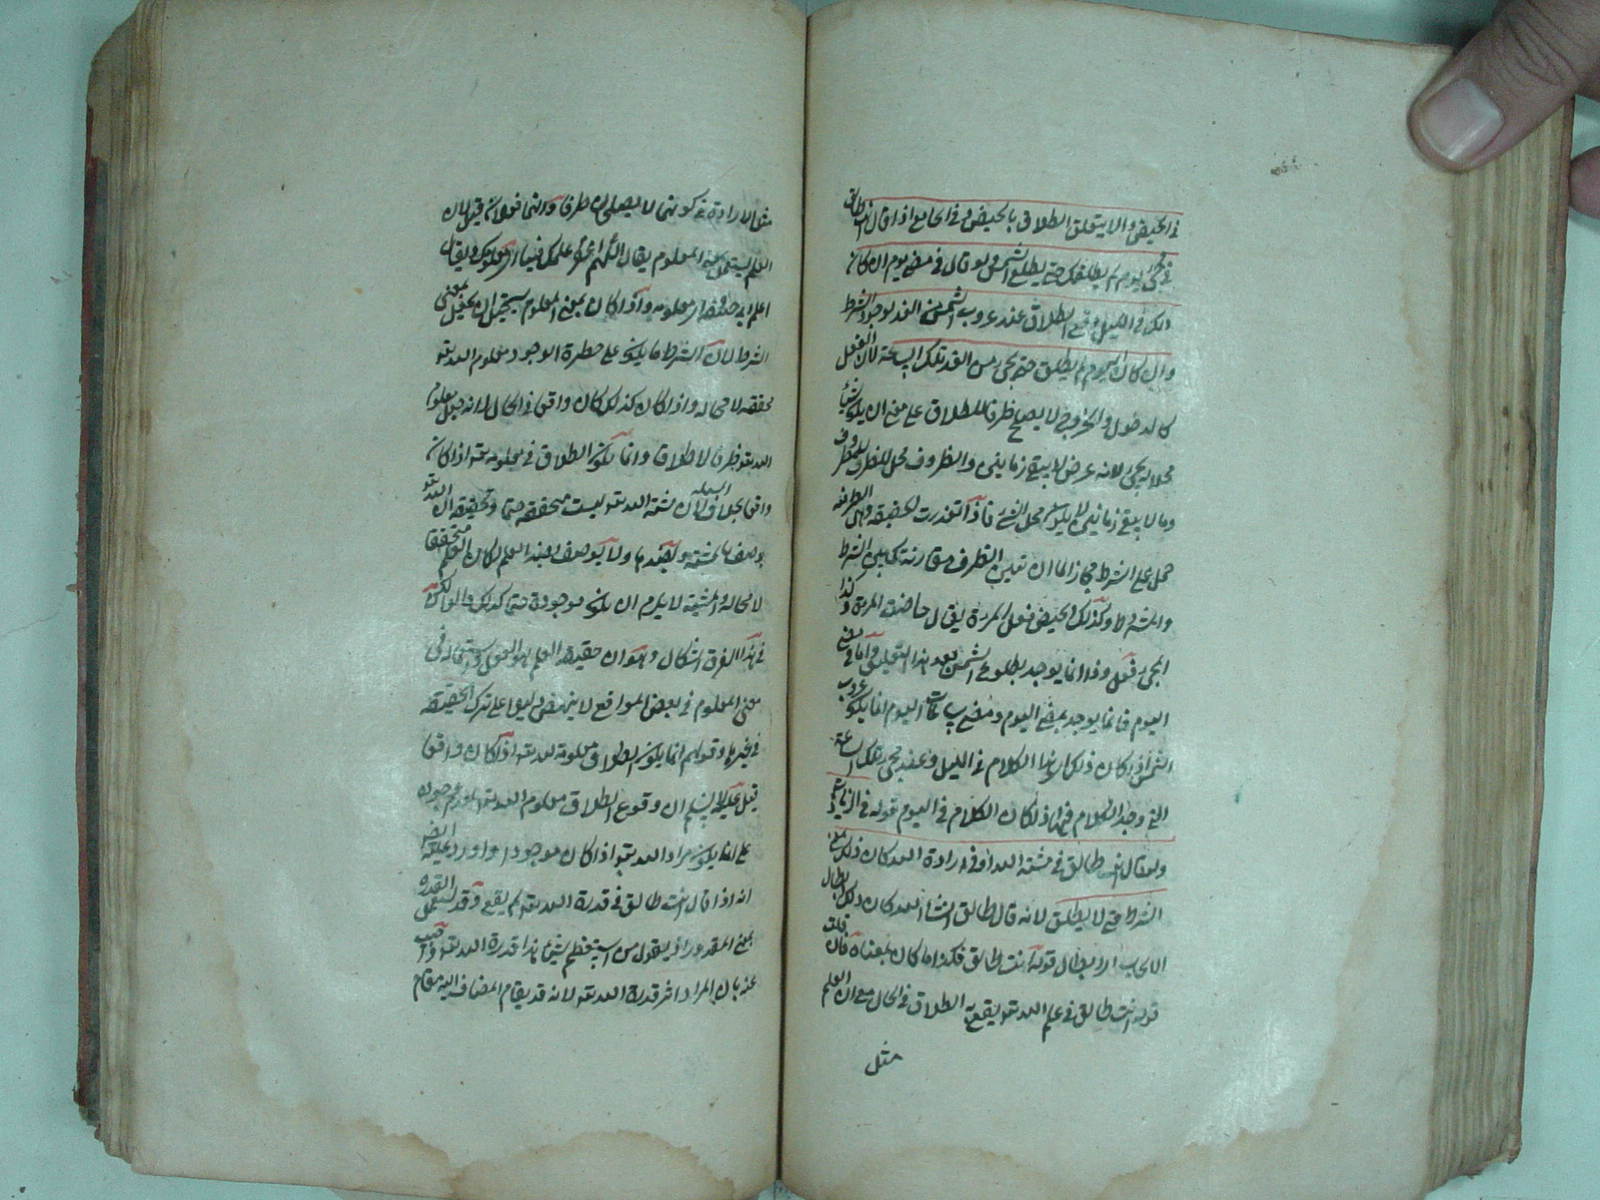 في الحيض والا يتعلق الطلاق بالحيض وفي الجامع اذا قال انت طالق
في مجئ يوم لم يطلق حتى يطلع الشمس ولو قال في مضي يوم ان كان
ذلك في الليل وقع الطلاق عند غروب الشمس من الغد لوجود الشرط
وان كان اليوم لم يطلق حتى يجئ من الغد تلك الساعة لان الفعل
كالدخول والخروج لا يصلح ظرفا للطلاق على معنى ان يكون شاغلا
محلا له يجئ لانه عرض لا يبقى زمانين والظروف محل للمظروف
وما لا يبقى زمانين لا يكون محل الشئ فاذا تعذرت الحقيقة وهي الظرفية
حمل على الشرط مجازا لما ان بين الظرف مقارنة كما بين الشرط
والمشروط وكذلك الحيض فعل المرءة يقال حاضت المرءة وكذا
المجئ فعل وذا انما يوجد بطلوع الشمس بعد هذا التعليق واما في مضي
اليوم فانما يوجد بمضي اليوم ومضي ساعات اليوم انما يكون غروب
الشمس اذا كان ذلك الكلام في الليل وعند مجئ تلك الساعة
التي وجد الكلام فيها اذا كان الكلام في اليوم قوله في الزيادات
ولو قال انت طالق في مشية الله او في ارادة الله كان ذلك بمعنى
الشرط حتى لا يطلق لانه قال طالق ان شاء الله كان ذلك ابطال
الايجاب اي ابطال قوله انت طالق فكذا ما كان بمعناه فان قلت
قوله انت طالق في علم الله تعو يقع به الطلاق في الحال مع ان العلم
مثل
مثل الارادة في كونهما لا يصلحان ظرفا وانما
العلم يستعمل بمعنى المعلوم يقال اللهم اغفر علمك فينا اي معلومك ويقال
علم ابي حنيفة اي معلومه واذا كان بمعنى المعلوم يستحيل ان يجعل بمعنى
الشرط لان الشرط ما يكون على خطر الوجود ومعلوم الله تعو
محققة لا محالة واذا كان كذلك كان واقعا في الحال لانه جعل معلوم
الله تعو ظرفا للطلاق وانما يكون الطلاق في معلومه تعو اذا كان
واقعا بخلاف المسئلة لان مشية الله تعو ليست متحققة حتما وتحقيقه ان الله تعو
يوصف بالمشية وبضدها ولا يوصف بضد العلم لكان العلم متحققا
لا محالة والمشية لا يلزم ان يكون موجودة حتما كذلك
في هذا الفرق اشكال وهو ان حقيقة العلم
معنى المعلوم في بعض المواقع لا ينهض دليلا على ترك الحقيقة
في غيرها وقولهم انما يكون الطلاق معلومه تعو اذا كان واقعا
قيل عليه لا نسلم ان وقوع الطلاق معلوم الله تعو
على انما يكون مراد الله تعو اذا كان موجودا واورد عليه ايضا
انه اذا قال انت طالق في قدرة الله تعو لم يقع وقد تستعمل القدرة
بمعنى المقدور اذ يقول من يستعظم شيئا هذا قدرة الله تعو واجيب
عنه بان المراد اثر قدرة الله تعو لانه قد يقام المضاف اليه مقام